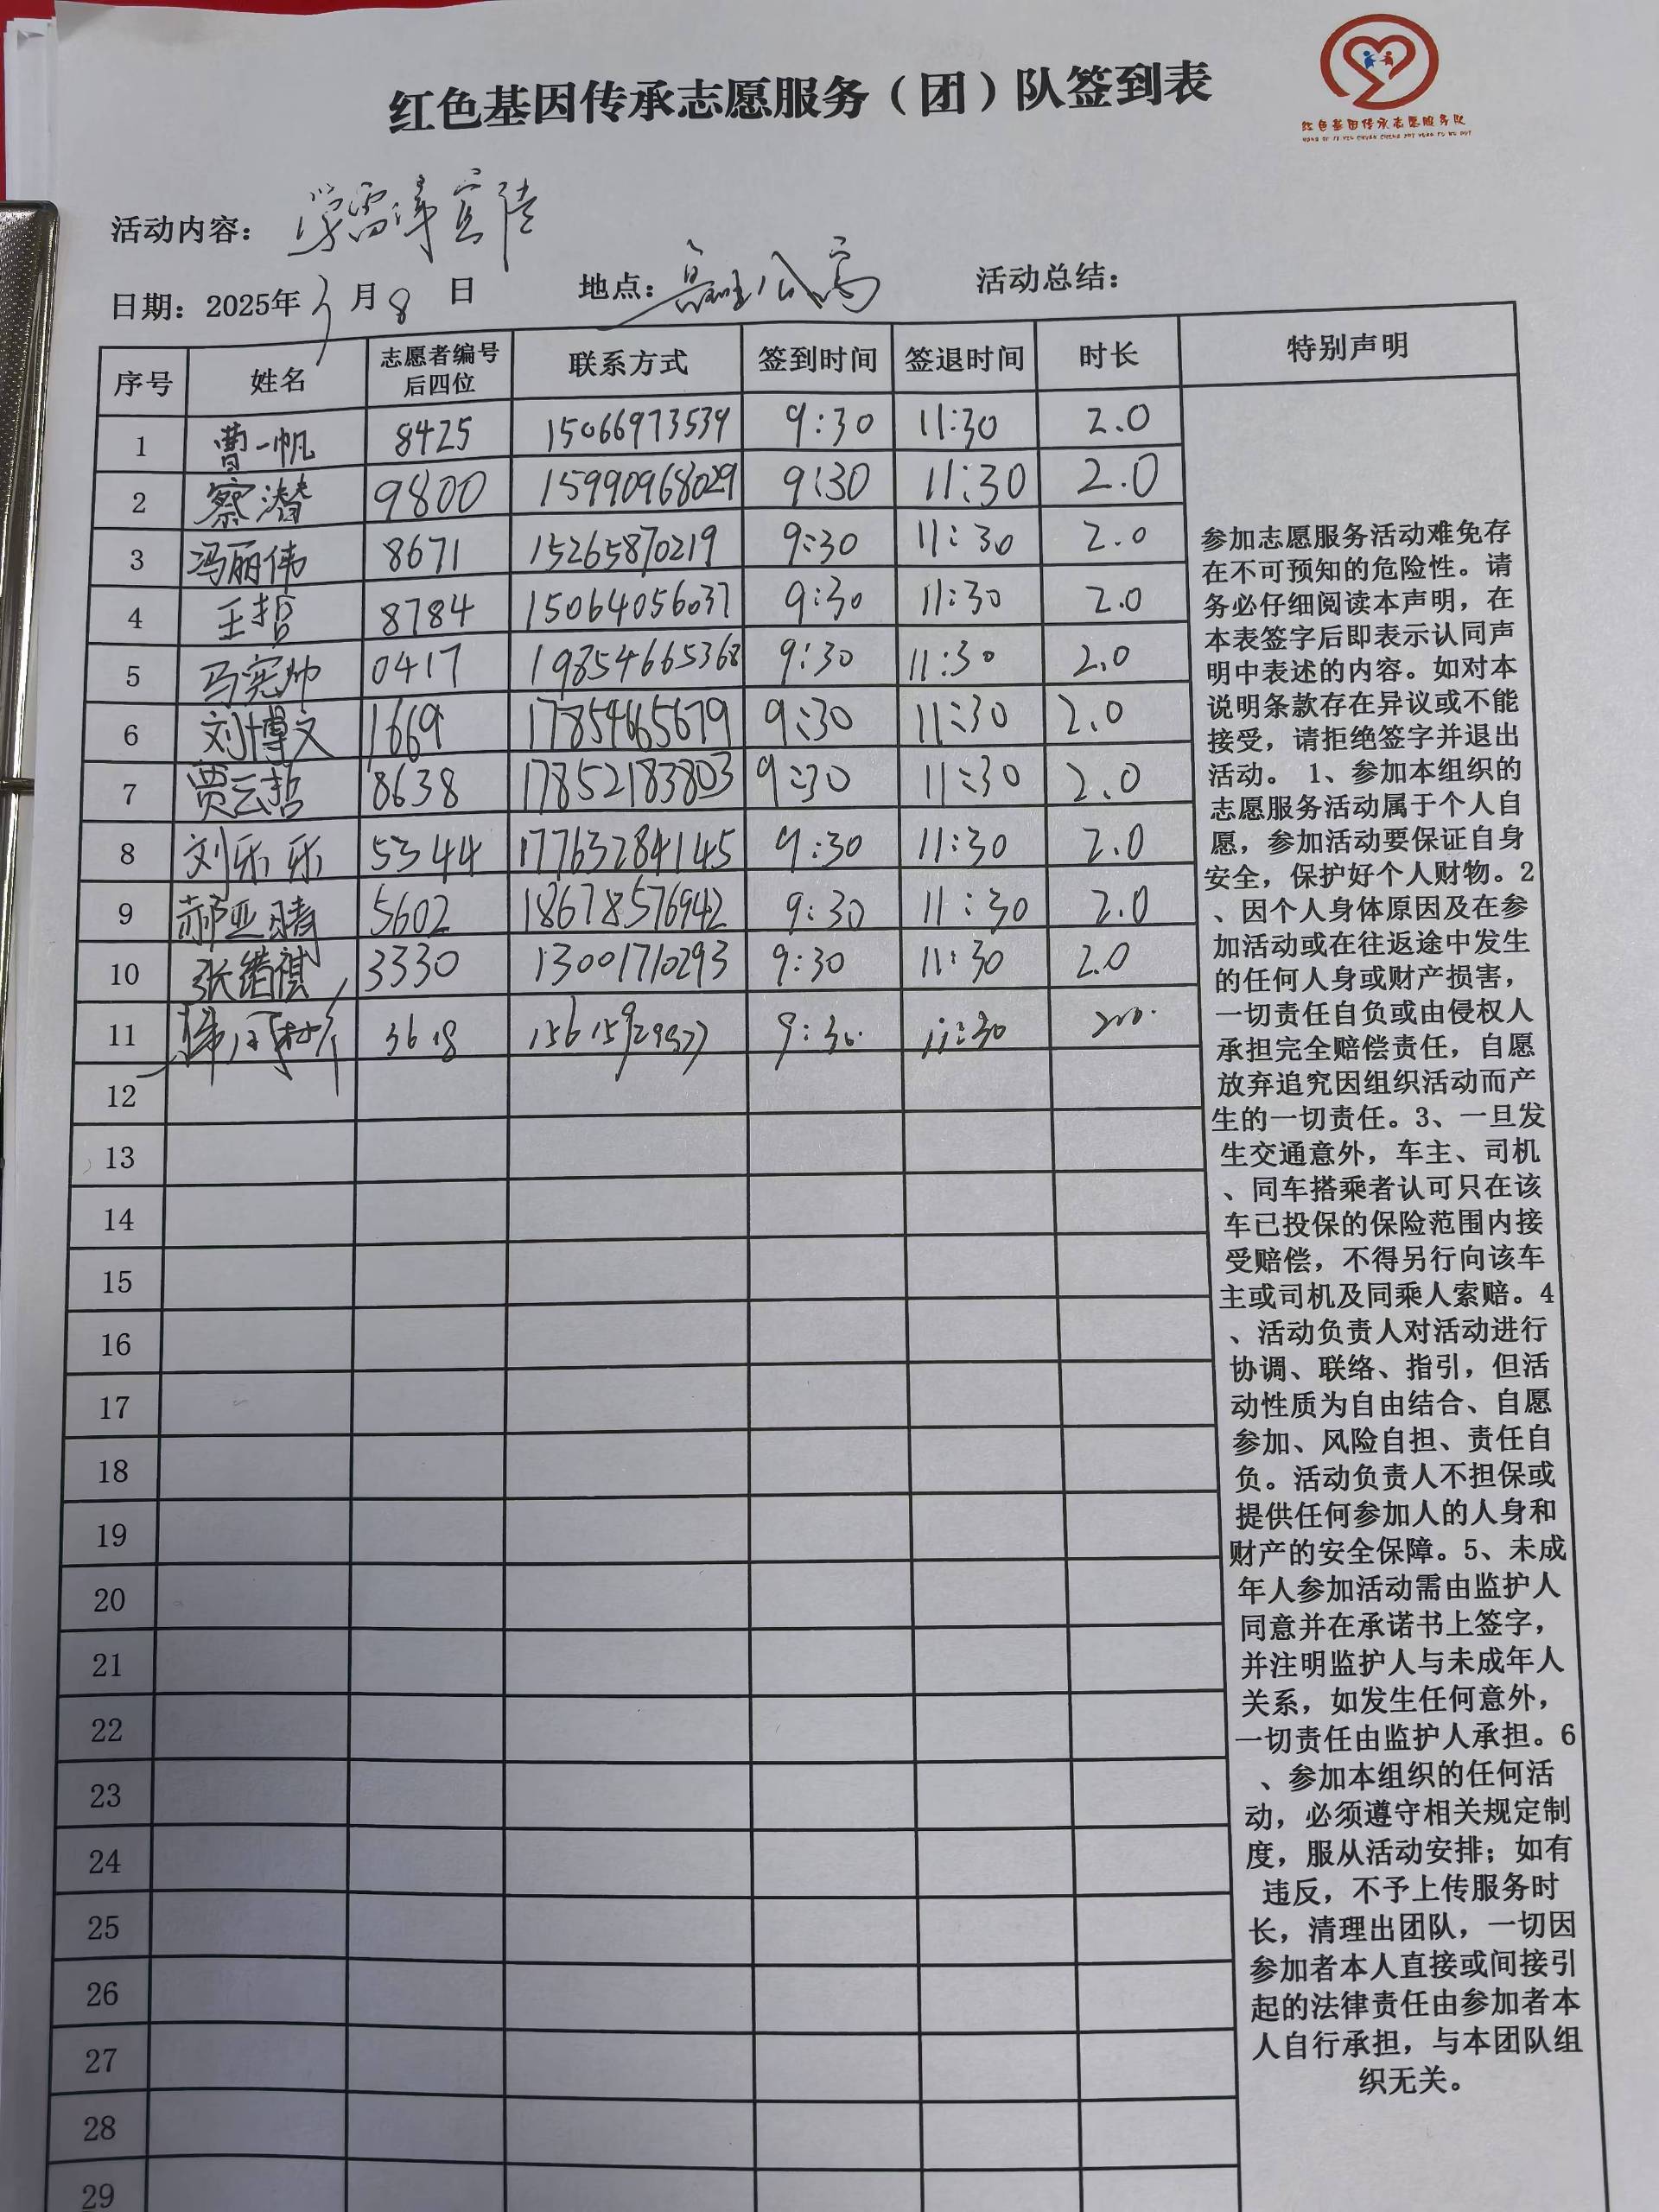 红色基因传承志愿服务（团）队签到表
红色基因传承志愿服务队
活动内容：学雷锋宣传
日期：2025年3月8日 地点： 活动总结：
序号 姓名 志愿者编号后四位 联系方式 签到时间 签退时间 时长 特别声明
1 曹一帆 8425 15066973539 9:30 11:30 2.0
2 蔡潜 9800 15990968029 9:30 11:30 2.0
3 冯丽伟 8671 15265870219 9:30 11:30 2.0
4 王哲 8784 15064056037 9:30 11:30 2.0
5 马宪帅 0417 19854665368 9:30 11:30 2.0
6 刘博文 1669 17854665679 9:30 11:30 2.0
7 贾云哲 8638 17852183803 9:30 11:30 2.0
8 刘乐乐 5344 17763284145 9:30 11:30 2.0
9 郝亚晴 5602 18678576942 9:30 11:30 2.0
10 张锴祺 3330 13001710293 9:30 11:30 2.0
11 3618 9:30 11:30
12
13
14
15
16
17
18
19
20
21
22
23
24
25
26
27
28
29
参加志愿服务活动难免存
在不可预知的危险性。请
务必仔细阅读本声明，在
本表签字后即表示认同声
明中表述的内容。如对本
说明条款存在异议或不能
接受，请拒绝签字并退出
活动。 1、参加本组织的
志愿服务活动属于个人自
愿，参加活动要保证自身
安全，保护好个人财物。2
、因个人身体原因及在参
加活动或在往返途中发生
的任何人身或财产损害，
一切责任自负或由侵权人
承担完全赔偿责任，自愿
放弃追究因组织活动而产
生的一切责任。3、一旦发
生交通意外，车主、司机
、同车搭乘者认可只在该
车已投保的保险范围内接
受赔偿，不得另行向该车
主或司机及同乘人索赔。4
、活动负责人对活动进行
协调、联络、指引，但活
动性质为自由结合、自愿
参加、风险自担、责任自
负。活动负责人不担保或
提供任何参加人的人身和
财产的安全保障。5、未成
年人参加活动需由监护人
同意并在承诺书上签字，
并注明监护人与未成年人
关系，如发生任何意外，
一切责任由监护人承担。6
、参加本组织的任何活
动，必须遵守相关规定制
度，服从活动安排；如有
违反，不予上传服务时
长，清理出团队，一切因
参加者本人直接或间接引
起的法律责任由参加者本
人自行承担，与本团队组
织无关。